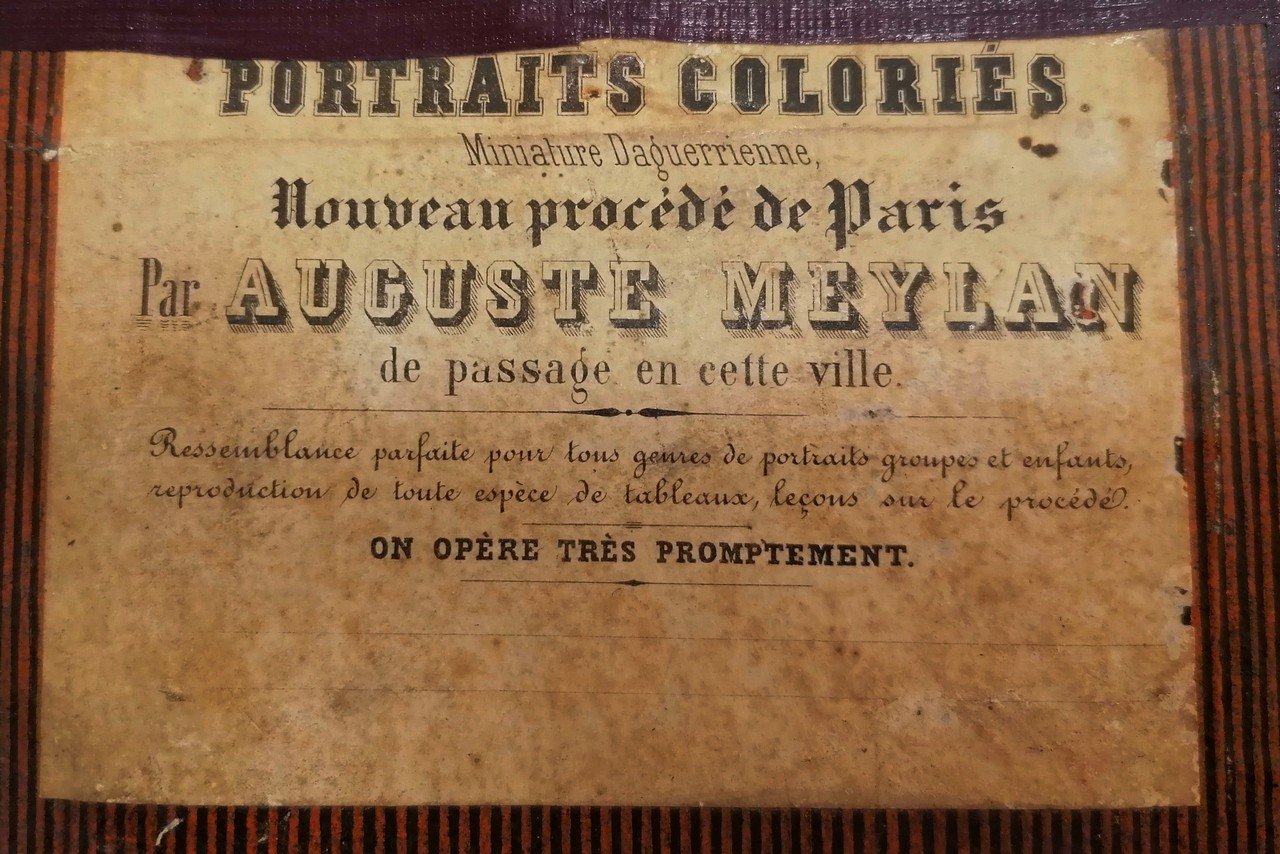 PORTRAITS COLORIÉS
Miniature Daguerrienne,
Nouveau procédé de Paris
Par AUGUSTE MEYLAN
de passage en cette ville.
Ressemblance parfaite pour tous genres de portraits groupes et enfants,
reproduction de toute espèce de tableaux, leçons sur le procédé.
ON OPÈRE TRÈS PROMPTEMENT.